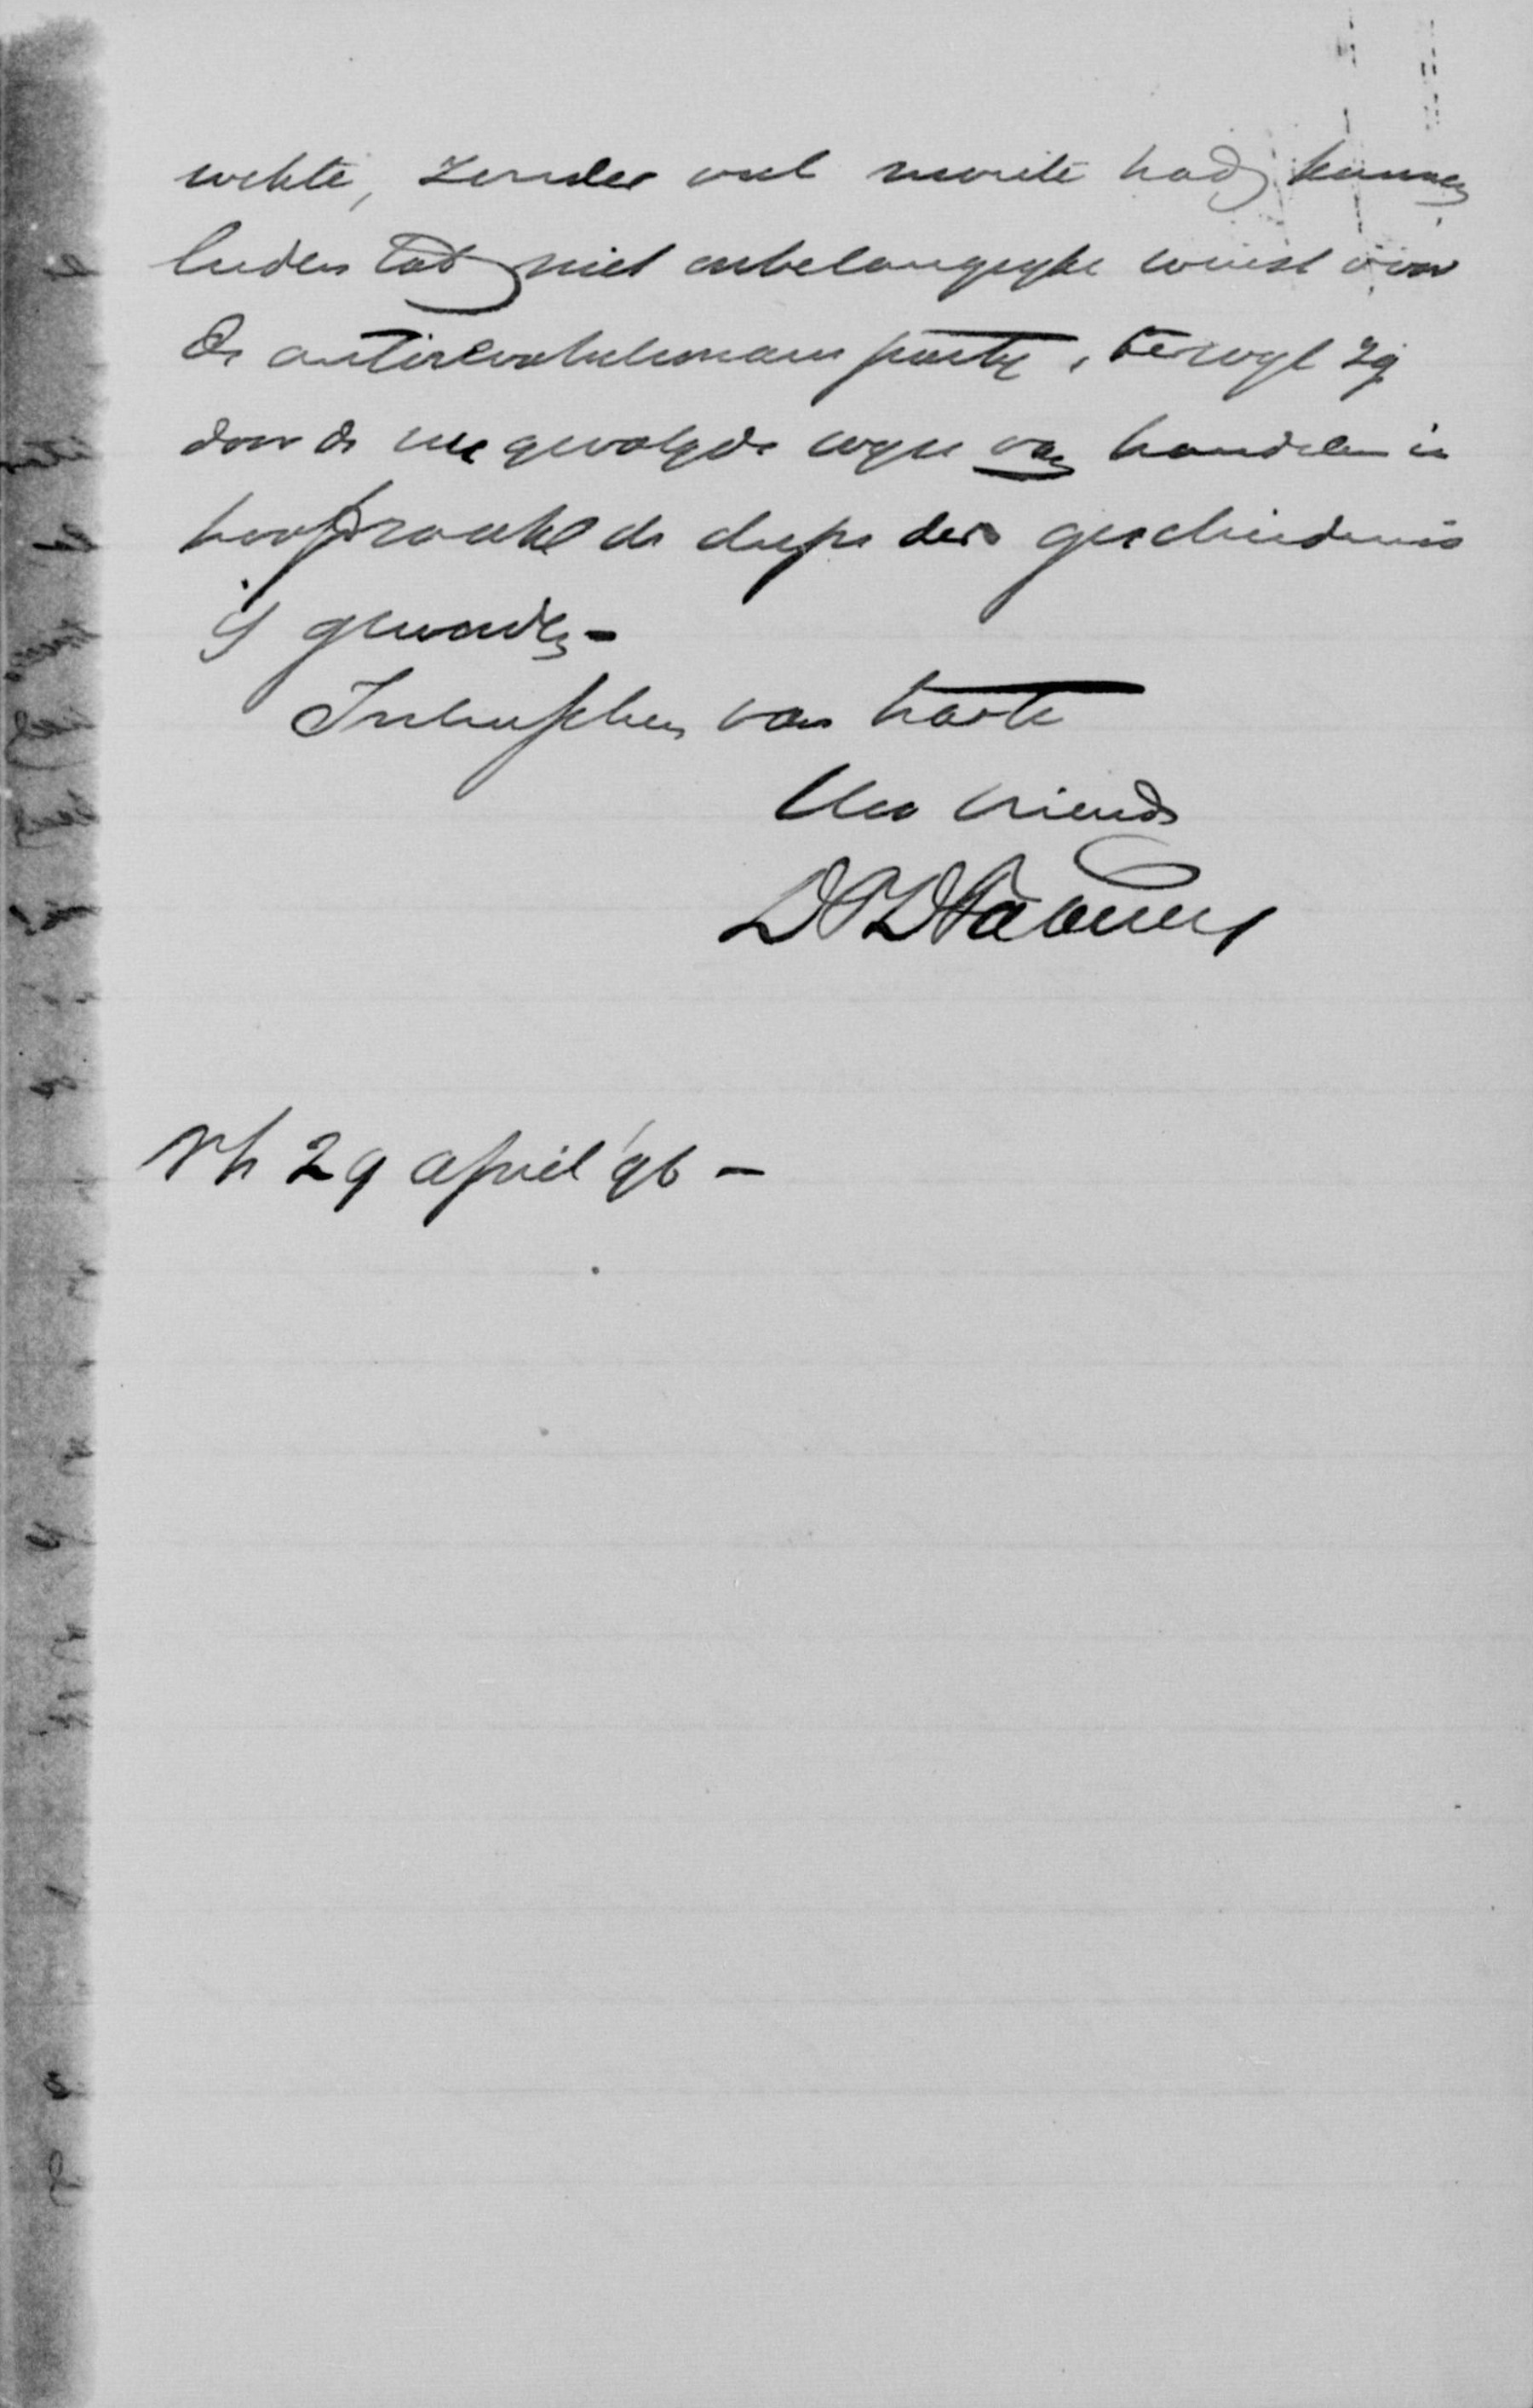 wekte, zonder veel moeite had kunnen
leiden tot niet onbelangryke winst voor
de antirevolutionaire party, terwyl zy
door de nu gevolgde wyze van handelen in
hoofdzaak de dupe der geschiedenis
is geworden -
Intusschen van harte
Uw vriend
DPDFabius
Vh 29 april '96 -